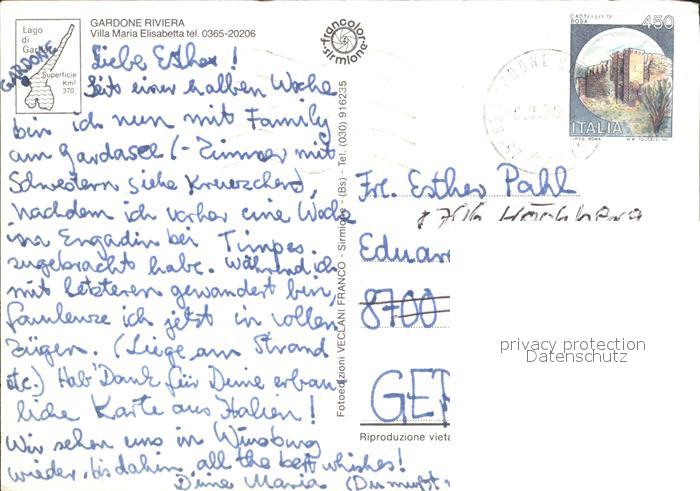 GARDONE RIVIERA
Villa Maria Elisabetta tel. 0365-20206
Lago
di
Garda
GARDONE
Superficie
Km²
370
francolor
sirmione
CASTELLO DI
ROSA
450
ITALIA
I.P.Z.S. ROMA
Liebe Esther!
Seit einer halben Woche
bin ich nun mit Family
am Gardasee (- Zimmer mit
Schwestern siehe Kreuzchen),
nachdem ich vorher eine Woche
im Engadin bei Timpes
zugebracht habe. Während ich
mit letzteren gewandert bin,
faulenze ich jetzt in vollen
Zügen. (Liege am Strand
etc.) Hab' Dank für Deine erbau-
liche Karte aus Italien!
Wir sehen uns in Würzburg
wieder, bis dahin all the best whishes!
Deine Maria (Du mußt
Fotoedizioni VECLANI FRANCO - Sirmione - (Bs) - Tel. (030) 916235
Frl. Esther Pahl
Eduar
8700
GER
Riproduzione vieta
privacy protection
Datenschutz